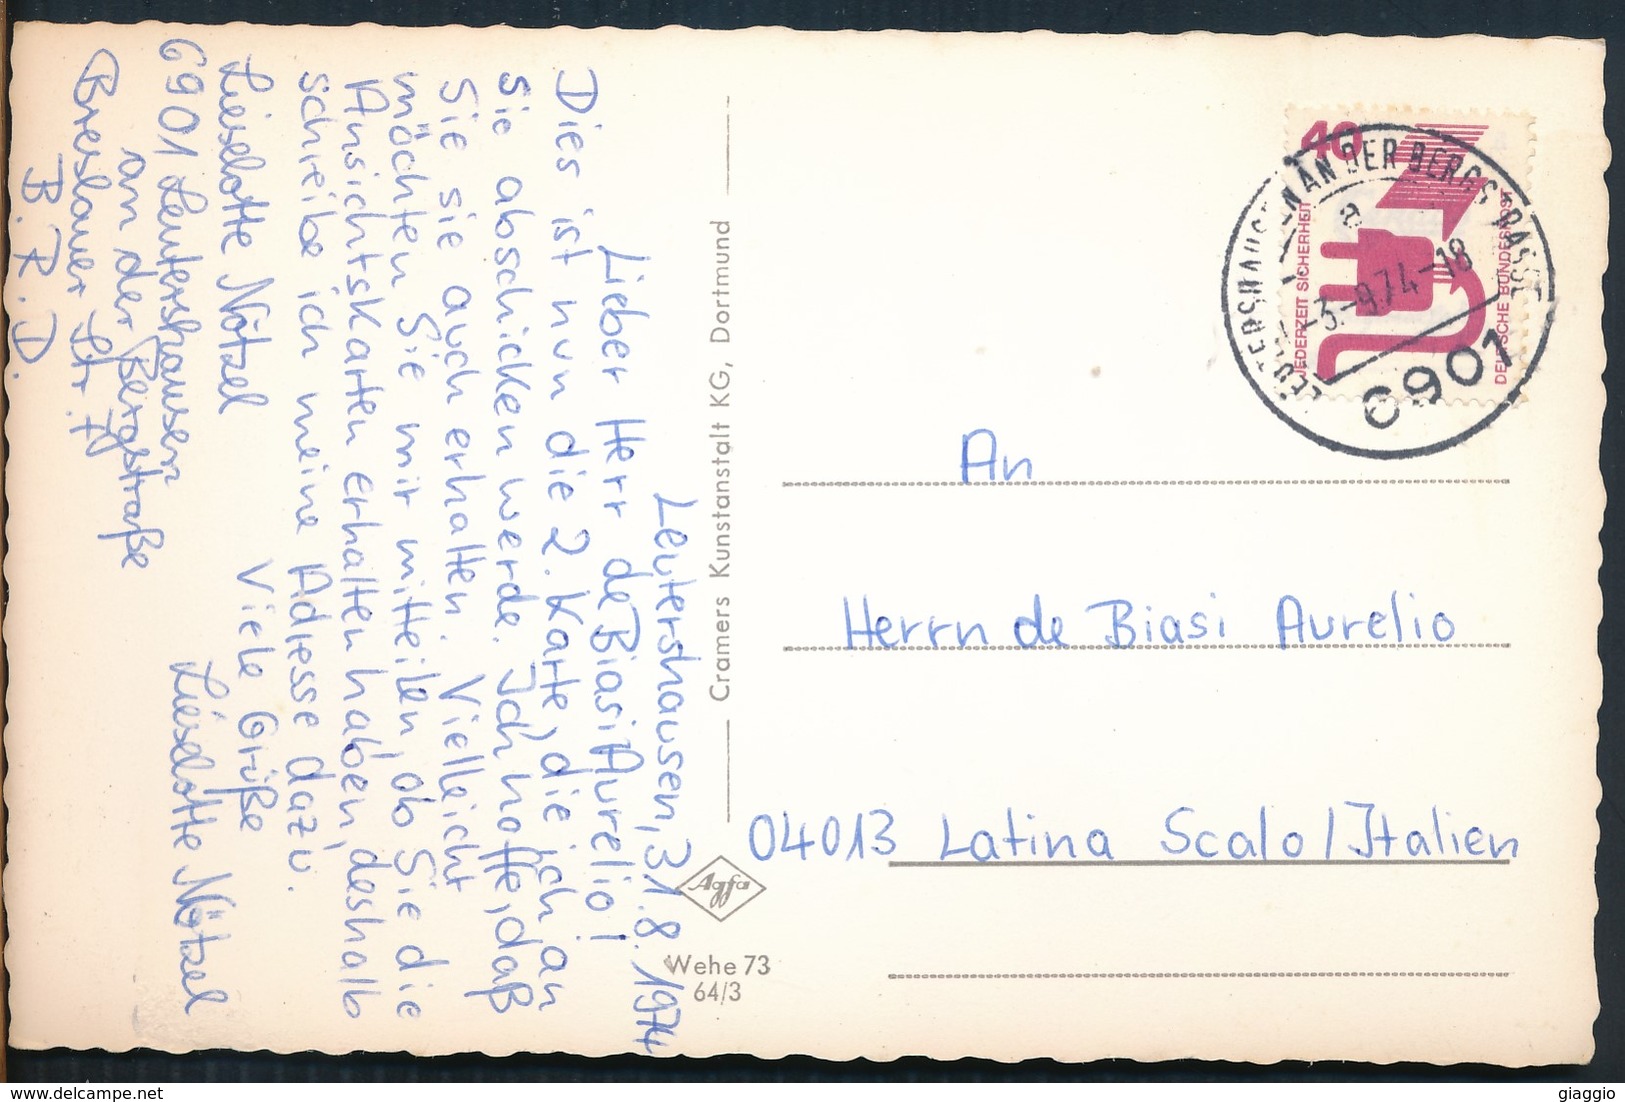 Leutershausen, 31.8.1974
Lieber Herr de Biasi Aurelio!
Dies ist nun die 2. Karte, die ich an
Sie abschicken werde. Ich hoffe, daß
Sie sie auch erhalten. Vielleicht
möchten Sie mir mitteilen, ob Sie die
Ansichtskarten erhalten haben, deshalb
schreibe ich meine Adresse dazu.
Viele Grüße
Lieselotte Nötzel
Lieselotte Nötzel
6901 Leutershausen
an der Bergstraße
Breslauer Str. 7
B.R.D.
Cramers Kunstanstalt KG, Dortmund
Agfa
Wehe 73
64/3
40
JEDERZEIT SICHERHEIT
DEUTSCHE BUNDESPOST
LEUTERSHAUSEN AN DER BERGSTRASSE
a
-3.-9.74-18
6901
An
Herrn de Biasi Aurelio
04013 Latina Scalo/Italien
giaggio